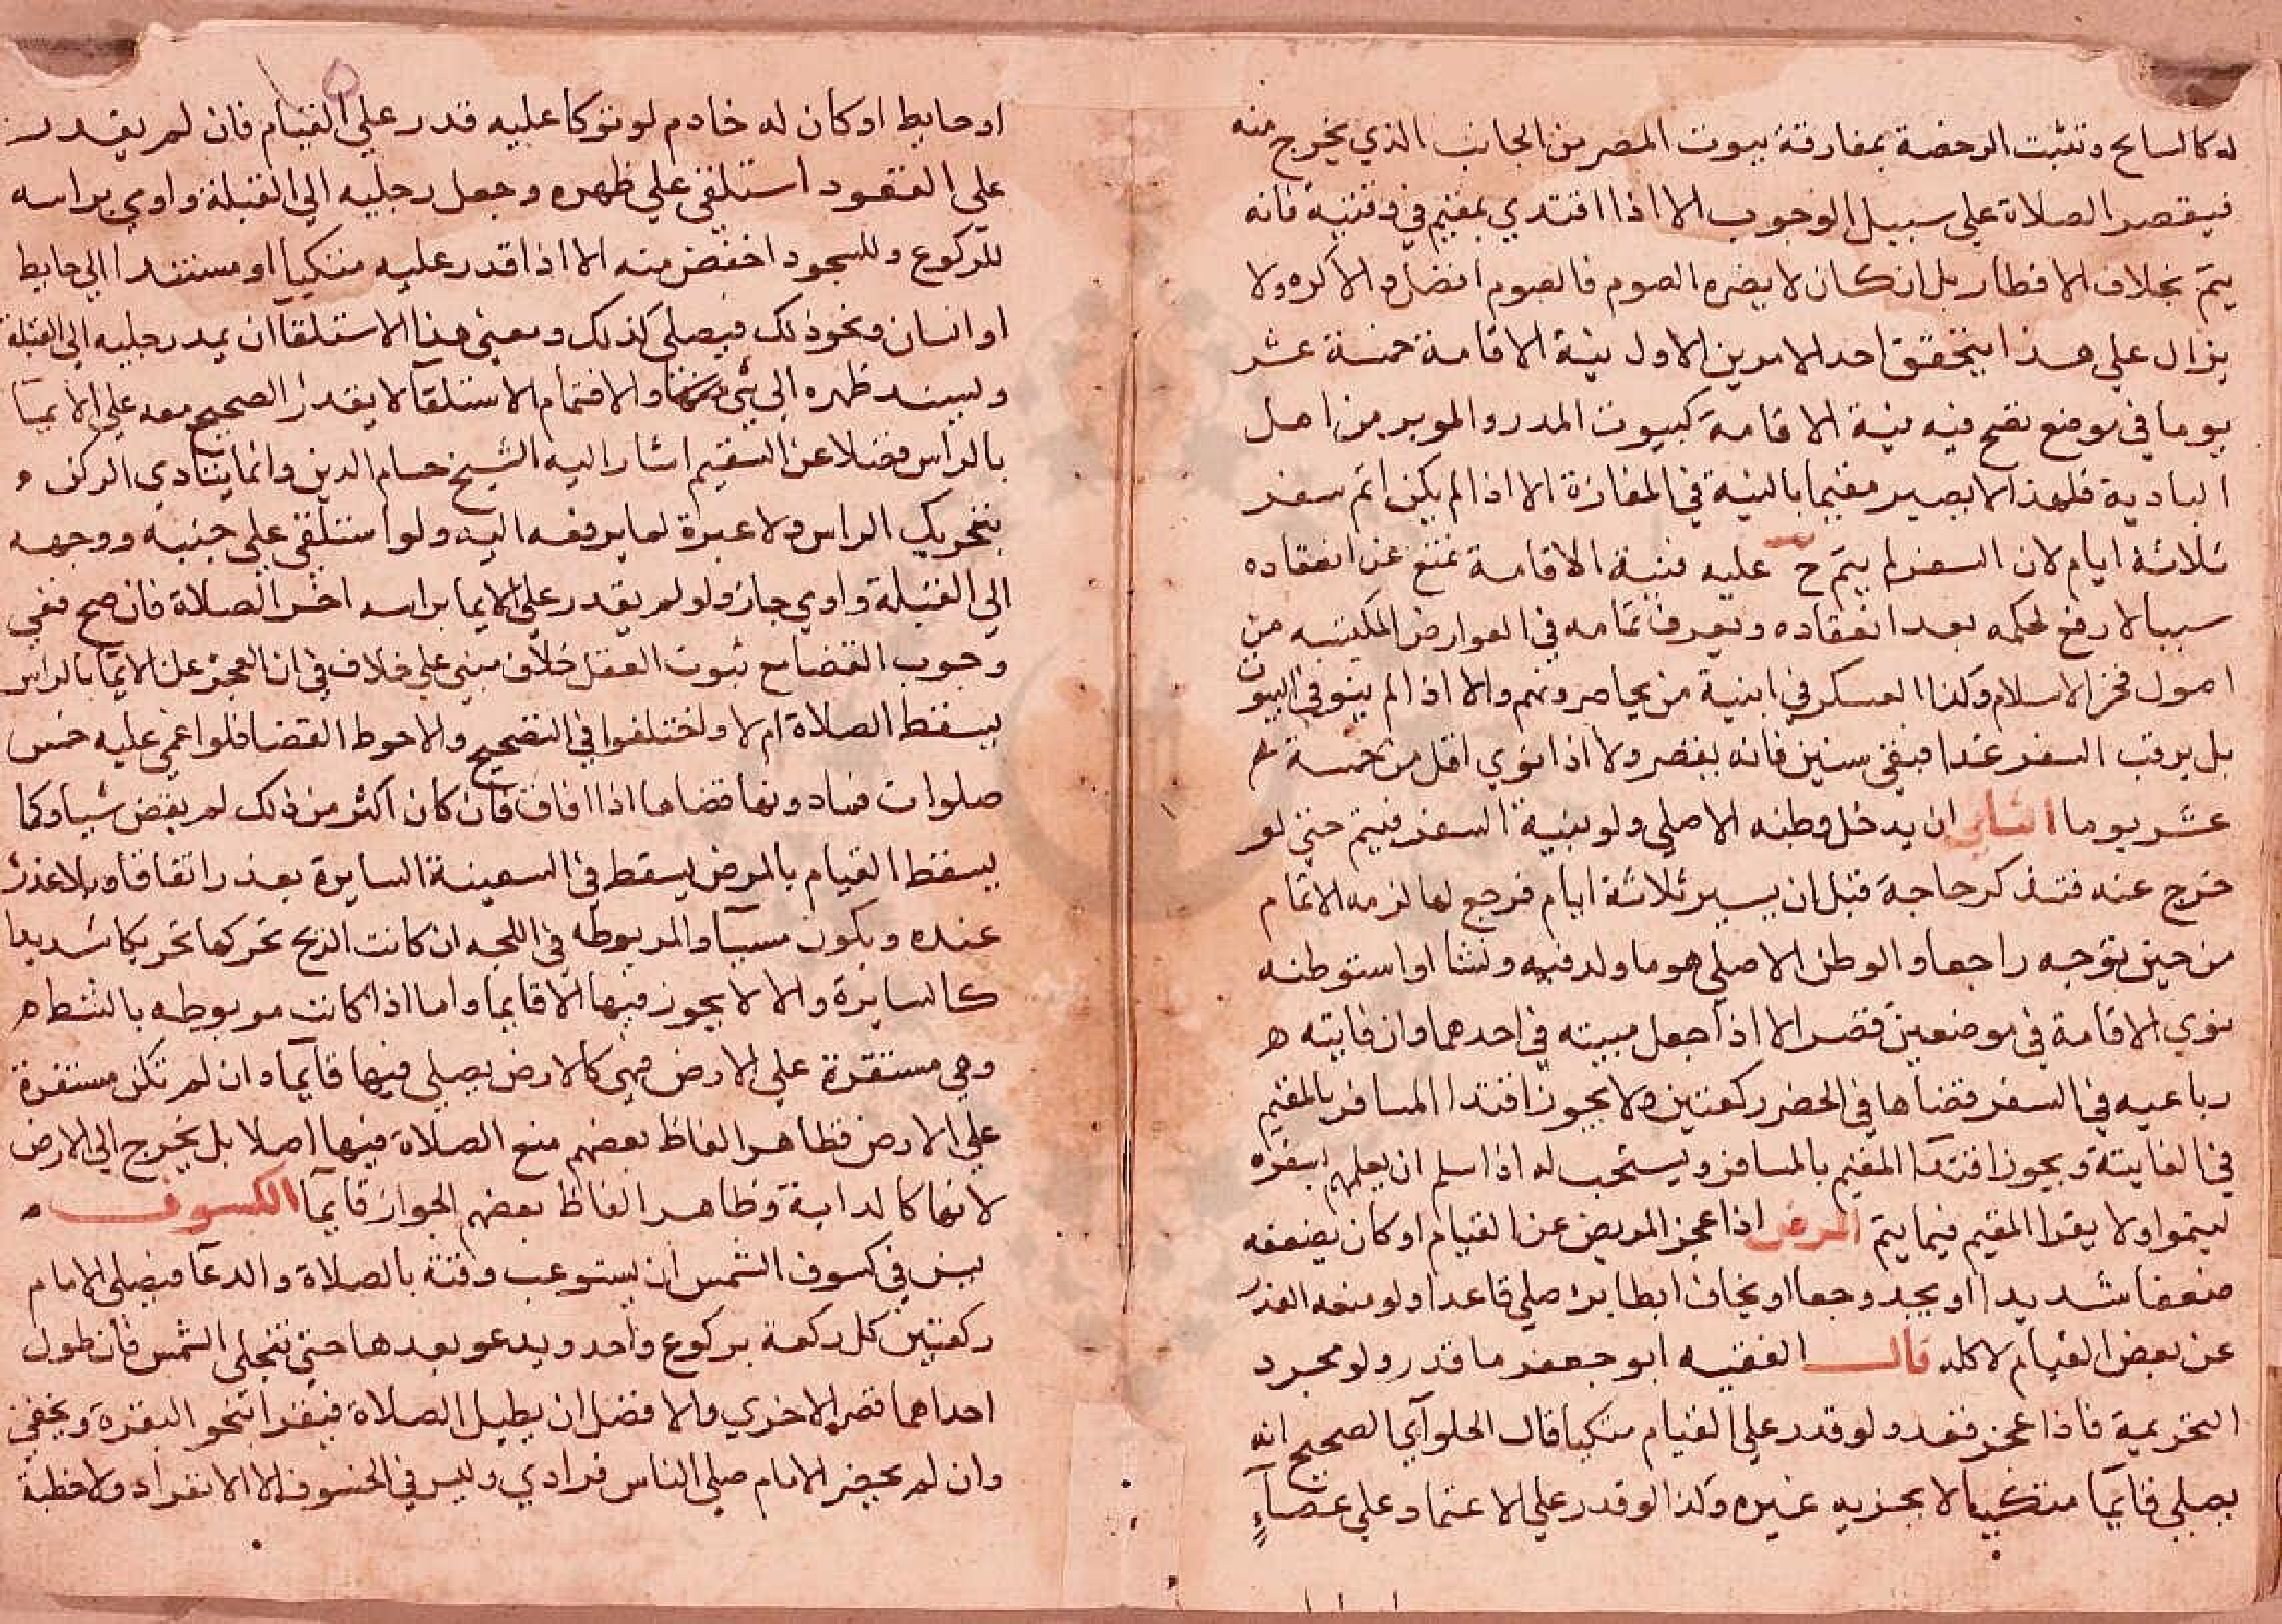 له كالسايح وتثبت الرخصة بمفارقة بيوت المصر من الجانب الذي يخرج منه
فيقصر الصلاة على سبيل الوجوب الا اذا اقتدي بمقيم في وقتية فانه
يتم بخلاف الافطار بل ان كان لا يضره الصوم فالصوم افضل والا كره ولا
يزال على هذا يتحقق احد الامرين الاول نية الاقامة خمسة عشر
يوما في موضع تصح فيه نية الاقامة كبيوت المدر والوبر من اهل
البادية فلهذا لا يصير مقيما بالنية في المفازة الا اذا لم يكن اتم سفر
ثلاثة ايام لان السفر لم يتم ح عليه فنية الاقامة تمنع عن انعقاده
سببا لا رفع لحكمه بعد انعقاده ويعرف تمامه في العوارض المكتسبه من
اصول فخر الاسلام وكذا العسكر في ابنية من يحاصرونهم والا اذا لم ينو في البيوت
بل يرقب السفر غدا فبقى سنين فانه يقصر ولا اذا نوي اقل من خمسة
عشر يوما الثاني ان يدخل وطنه الاصلي ولو بنية السفر فيتم حتى لو
خرج عنه فتذكر حاجة قبل ان يسير ثلاثة ايام فرجع لها لزمه الاتمام
من حين توجه راجعا والوطن الاصلي هو ما ولد فيه ونشا او استوطنه
نوي الاقامة في موضعين قصر الا اذا جعل مبيته في احدهما وان فايته
رباعيه في السفر قضاها في الحضر ركعتين ولا يجوز اقتدا المسافر بالمقيم
في الفايتة ويجوز اقتدا المقيم بالمسافر ويستحب له اذا سلم ان يعلمهم بسفره
ليتموا ولا يقرا المقيم فيما يتم المرض اذا عجز المريض عن القيام او كان يضعفه
ضعفا شديدا او يجد وجعا او يخاف ابطا برء صلى قاعدا ولو منعه العذر
عن بعض القيام لا كله قال الفقيه ابو جعفر ما قدر ولو مجرد
التحريمة فاذا عجز قعد ولو قدر على القيام متكيا قال الحلوآي الصحيح انه
يصلي قايما متكيا لا يجزيه غيره وكذا لو قدر على الاعتماد على عصآء
او حايط او كان له خادم لو توكا عليه قدر على القيام فان لم يقدر
على القعود استلقى على ظهره وجعل رجليه الى القبلة واومي براسه
للركوع وللسجود اخفض منه الا اذا قدر عليه متكيا او مستندا الى حايط
او انسان ونحو ذلك فيصلي كذلك ومعنى هذا الاستلقآ ان يمد رجليه الى القبلة
ويسند ظهره الى شي والا فتمام الاستلقآ لا يقدر الصحيح معه على الايمآ
بالراس فضلا عن السقيم اشار اليه الشيخ حسام الدين وانما يتادي الركن
بتحريك الراس ولا عبرة لما يرفعه اليه ولو استلقى على جنبه ووجهه
الى القبلة واومي جاز ولو لم يقدر على الايما براسه اخر الصلاة فان صح ففي
وجوب القضا مع ثبوت العقل خلاف مبني على خلاف في ان العجز عن الايمآ بالراس
يسقط الصلاة ام لا واختلفوا في التصحيح والاحوط القضا فلو اغمي عليه خمس
صلوات فما دونها قضاها اذا افاق فان كان اكثر من ذلك لم يقض شيا وكما
يسقط القيام بالمرض يسقط في السفينة السايرة بعذر اتفاقا وبلا عذر
عنده ويكون مسيآ والمربوطه في اللجه ان كانت الريح تحركها تحريكا شديدا
كالسايرة والا لا يجوز فيها الا قايما واما اذا كانت مربوطه بالشط
وهي مستقرة على الارض فهي كالارض يصلي فيها قايما وان لم تكن مستقرة
على الارض فظاهر الفاظ بعضهم منع الصلاة فيها اصلا بل يخرج الى الارض
لانها كالدابة وظاهر الفاظ بعضهم الجواز قايمآ الكسوف
يسن في كسوف الشمس ان يستوعب وقته بالصلاة والدعآ فيصلي الامام
ركعتين كل ركعة بركوع واحد ويدعو بعدها حتى تنجلي الشمس فان طول
احداهما قصر الاخري والافضل ان يطيل الصلاة فيقرا بنحو البقرة ويخفي
وان لم يحضر الامام صلى الناس فرادي وليس في الخسوف الا الانفراد ولا خطبة